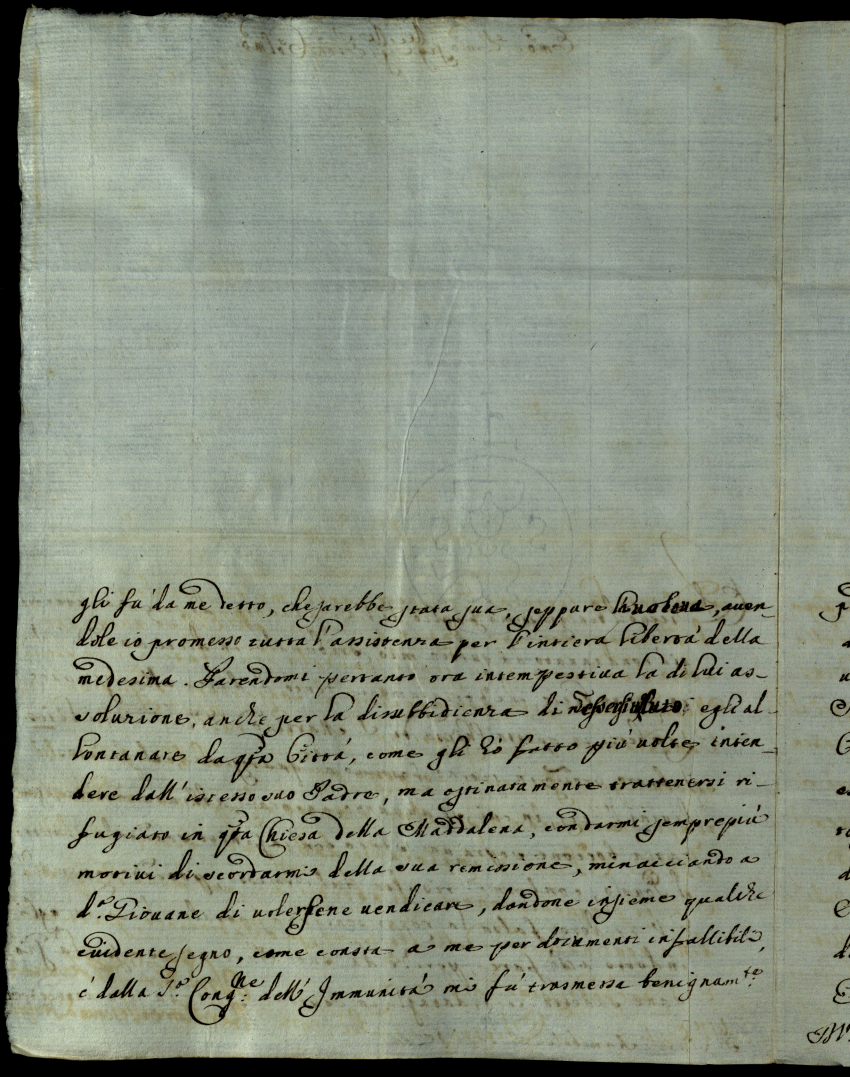 gli fù da me detto, che sarebbe stata sua, seppure la voleva, aven-
dole io promesso tutta l'assistenza per l'intiera libertà della
medesima. Parendomi pertanto ora intempestiva la di lui as-
soluzione, anche per la disubbidienza di egli al
lontanare da qta Città, come gli hò fatto più volte inten-
dere dall'istesso suo Padre, ma ostinatamente trattenersi ri-
fugiato in qta Chiesa della Maddalena, e darmi sempre più
motivi di scordarmi della sua remissione, minacciando a
do. Piovane di volersene vendicare, dandone insieme qualche
evidente segno, come consta a me per documenti infallibili,
e dalla Sa. Congne. dell'Immunità mi fù trasmessa benignamte